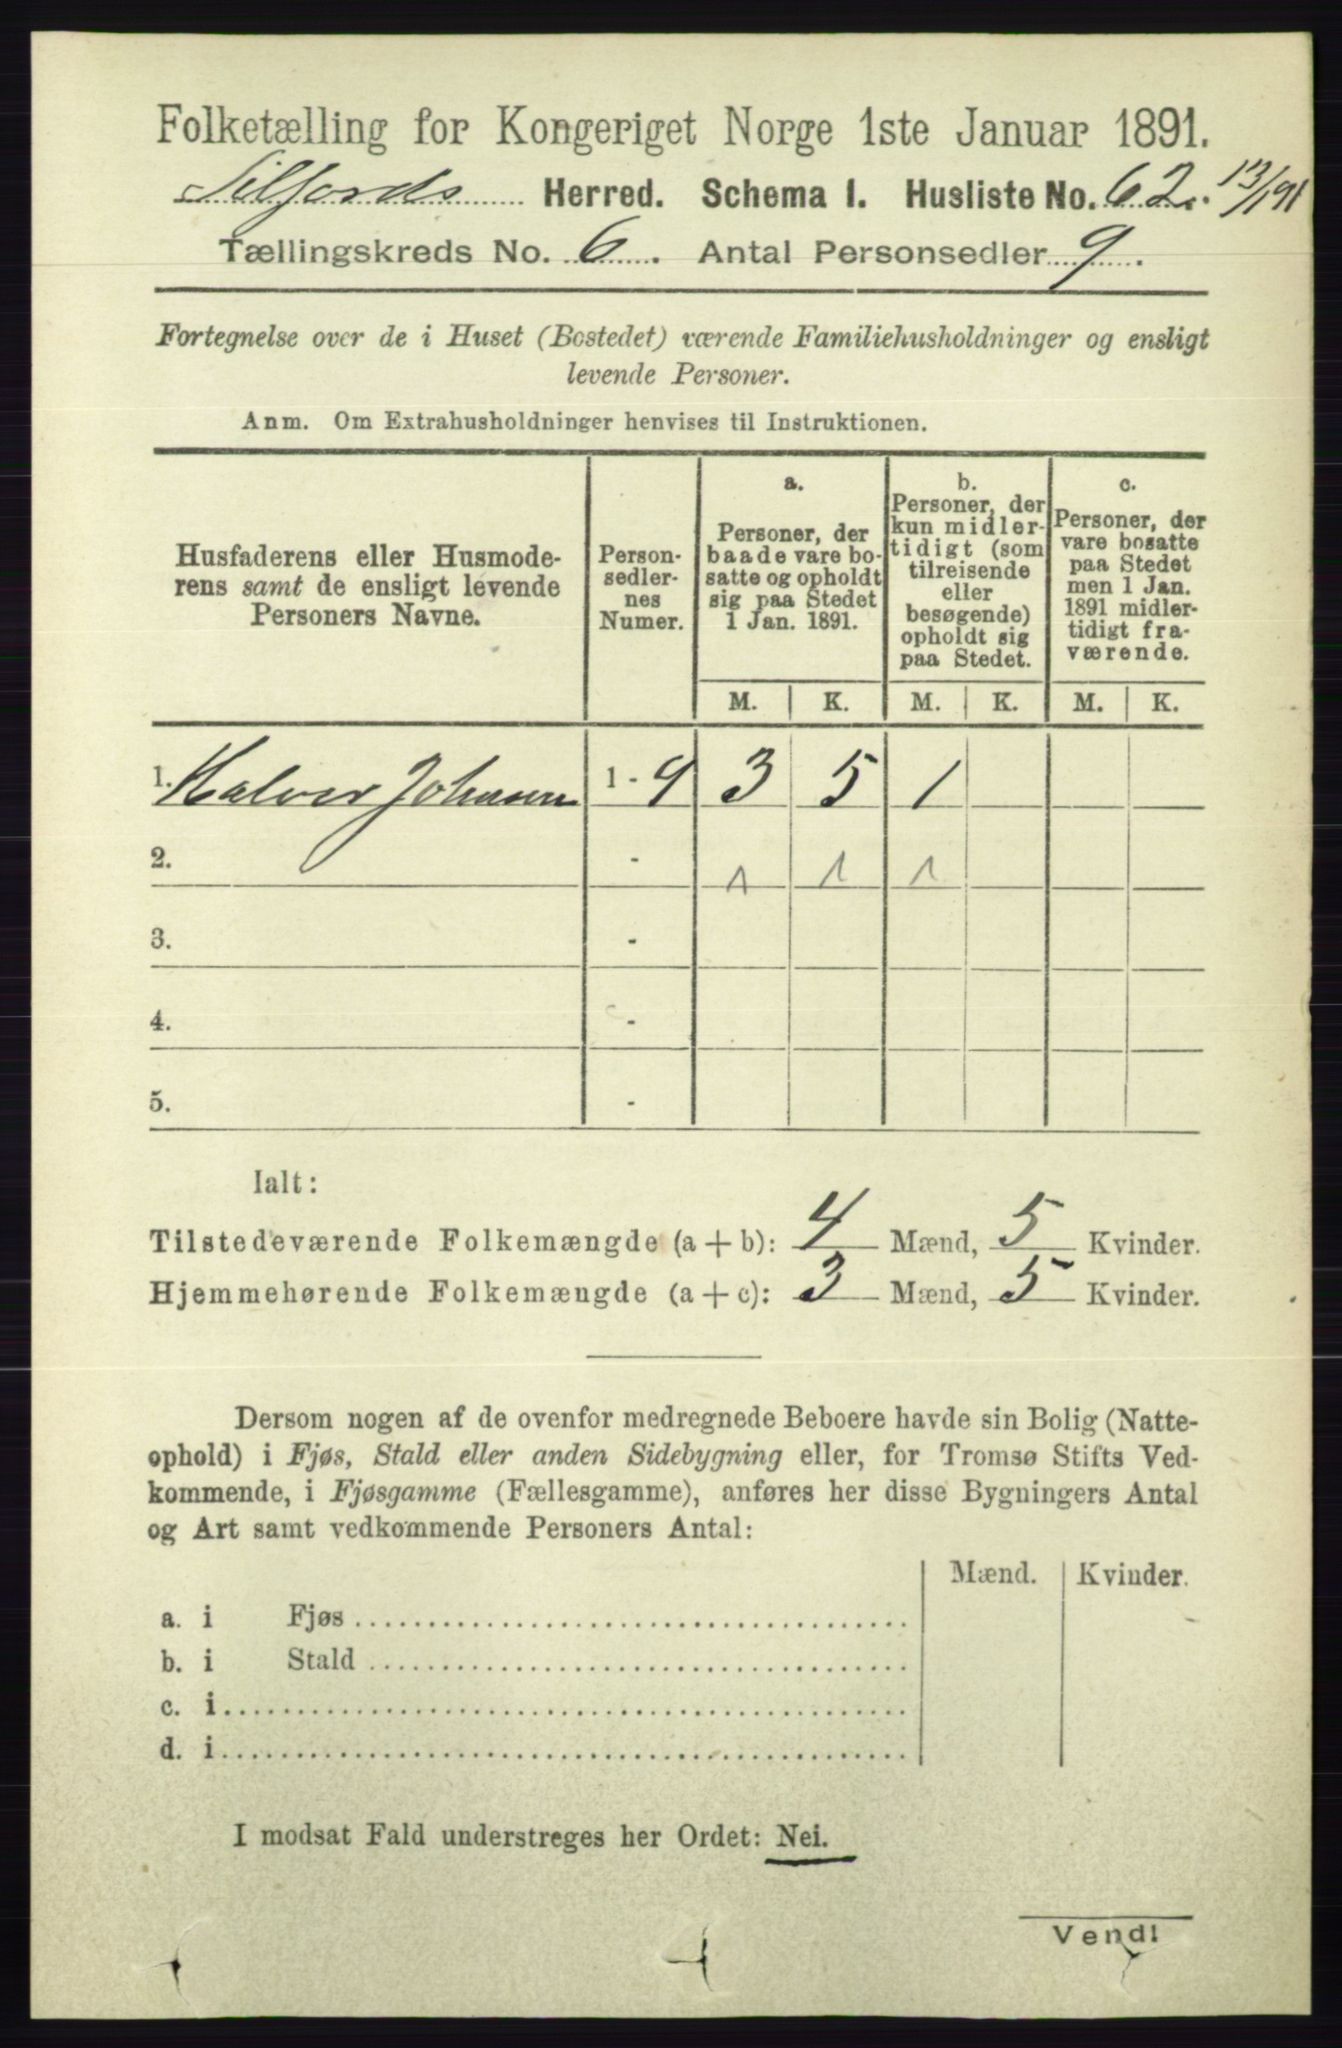 Folketælling for Kongeriget Norge 1ste Januar 1891.
Siljords Herred. Schema I. Husliste No. 62. 13/1 91
Tællingskreds No. 6. Antal Personsedler 9.
Fortegnelse over de i Huset (Bostedet) værende Familiehusholdninger og ensligt
levende Personer.
Anm. Om Extrahusholdninger henvises til Instruktionen.
Husfaderens eller Husmode-
rens samt de ensligt levende
Personers Navne.
Person-
sedler-
nes
Numer.
a.
Personer, der
baade vare bo-
satte og opholdt
sig paa Stedet
1 Jan. 1891.
b.
Personer, der
kun midler-
tidigt (som
tilreisende
eller
besøgende)
opholdt sig
paa Stedet.
c.
Personer, der
vare bosatte
paa Stedet
men 1 Jan.
1891 midler-
tidigt fra-
værende.
M. K. M. K. M. K.
1. Halvor Johnsen 1 - 9 3 5 1
2. - 1 1 1
3. -
4. -
5. -
Ialt:
Tilstedeværende Folkemængde (a + b): 4 Mænd, 5 Kvinder.
Hjemmehørende Folkemængde (a + c): 3 Mænd, 5 Kvinder.
Dersom nogen af de ovenfor medregnede Beboere havde sin Bolig (Natte-
ophold) i Fjøs, Stald eller anden Sidebygning eller, for Tromsø Stifts Ved-
kommende, i Fjøsgamme (Fællesgamme), anføres her disse Bygningers Antal
og Art samt vedkommende Personers Antal:
Mænd. Kvinder.
a. i Fjøs
b. i Stald
c. i
d. i
I modsat Fald understreges her Ordet: Nei.
Vend!